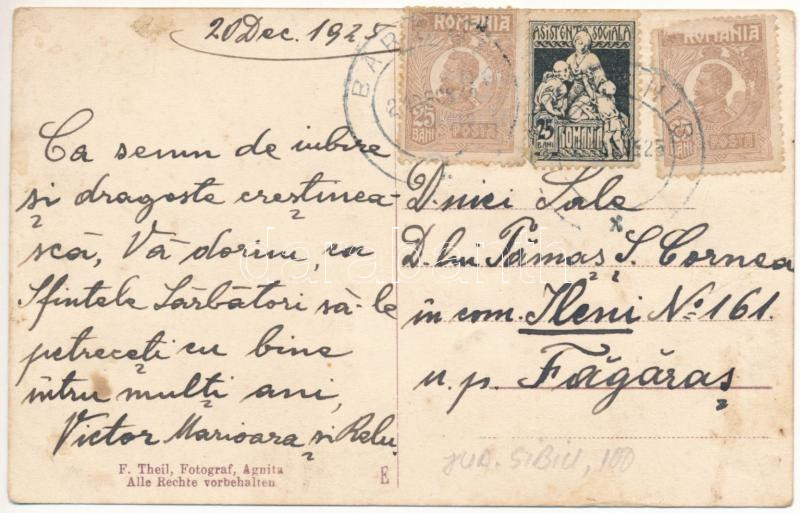 20 Dec. 1925
ROMANIA
25
BANI
POSTA
ASISTENTA SOCIALA
25
BANI
ROMANIA
ROMANIA
25
BANI
POSTA
Ca semn de iubire
și dragoste creștinea-
scă, Vă dorim, ca
Sfintele Sărbători să-le
petreceți cu bine
întru mulți ani,
Victor Marioara și Relu
D-niei Sale
D. lui Tămaș Ș. Cornea
în com. Ileni No 161.
u. p. Făgăraș
F. Theil, Fotograf, Agnita
Alle Rechte vorbehalten
E
JUD. SIBIU, 100
darabanth